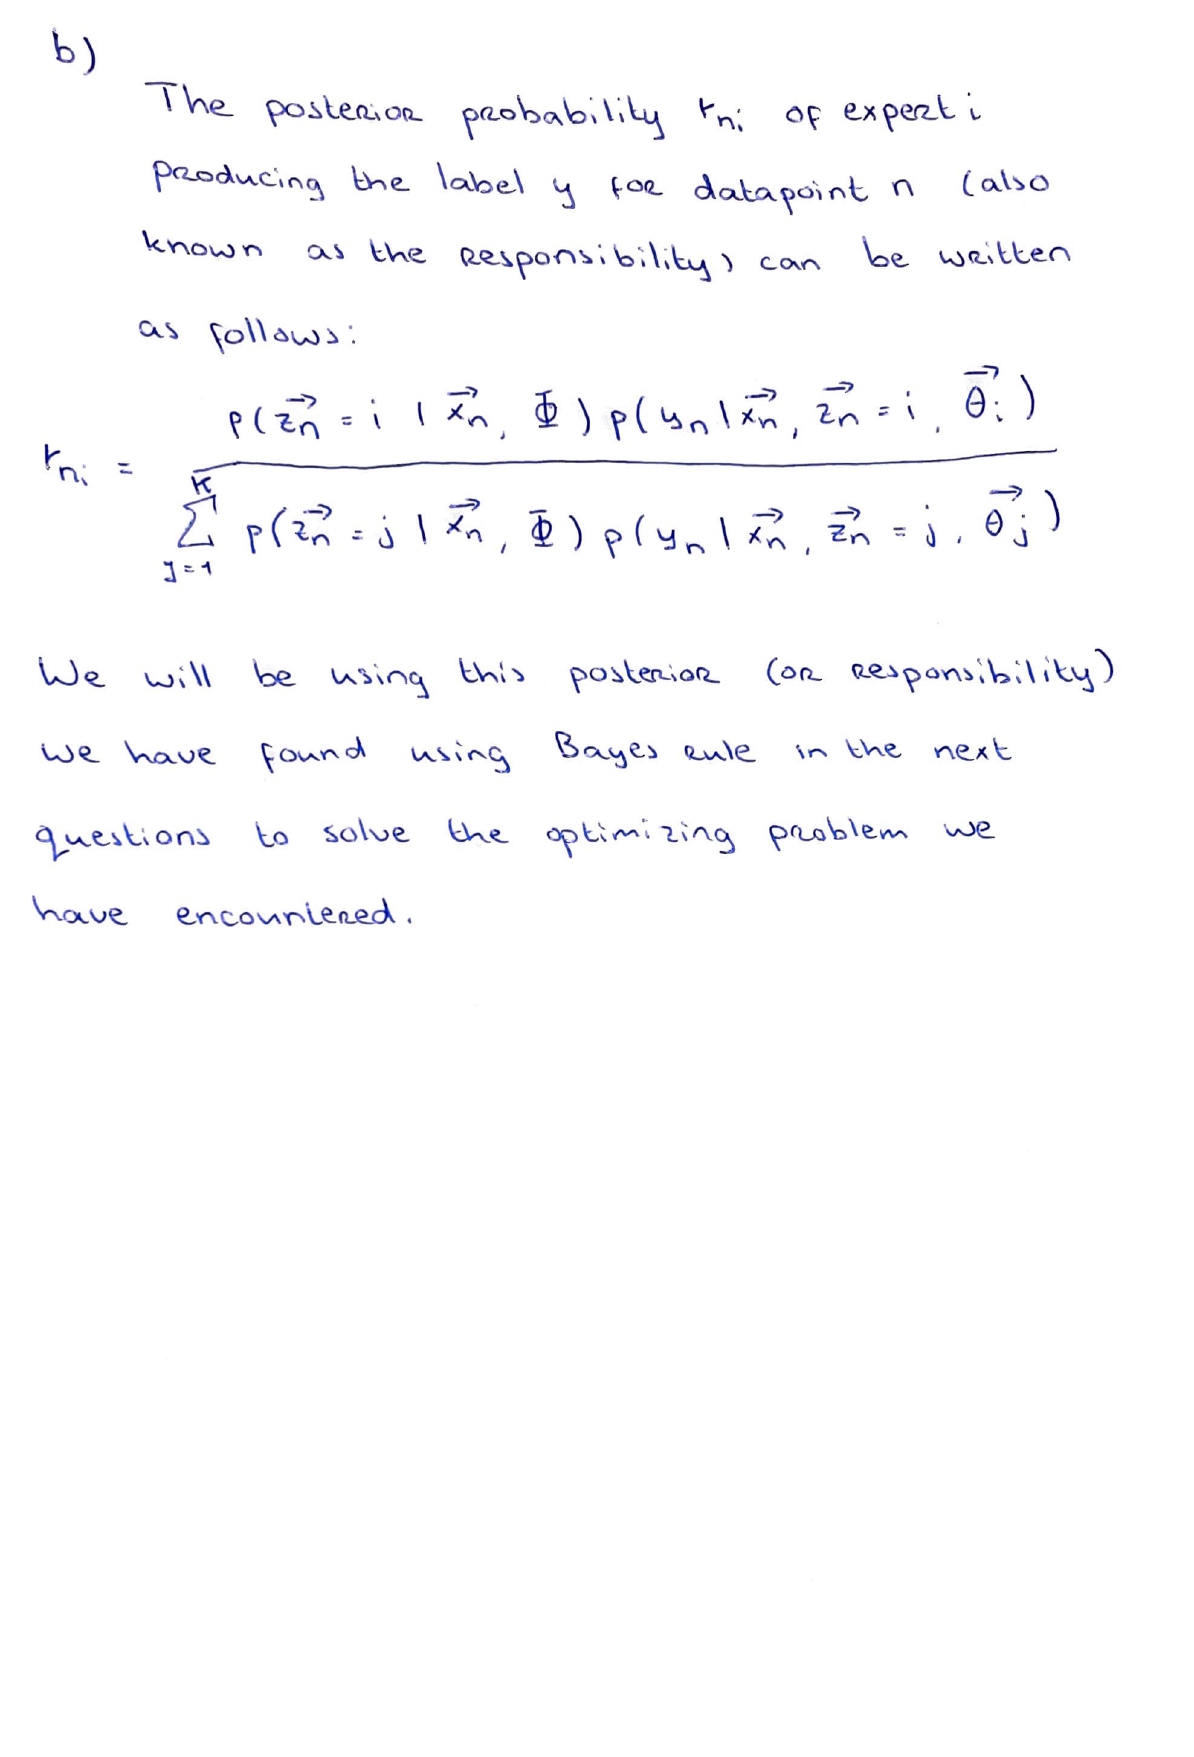 b)
The posterior probability rₙᵢ of expert i
producing the label y for datapoint n (also
known as the responsibility) can be written
as follows:
p(z⃗ₙ = i | x⃗ₙ, Φ) p(yₙ | x⃗ₙ, z⃗ₙ = i, θ⃗ᵢ)
rₙᵢ =
K
Σ p(z⃗ₙ = j | x⃗ₙ, Φ) p(yₙ | x⃗ₙ, z⃗ₙ = j, θ⃗ⱼ)
J=1
We will be using this posterior (or responsibility)
we have found using Bayes rule in the next
questions to solve the optimizing problem we
have encountered.